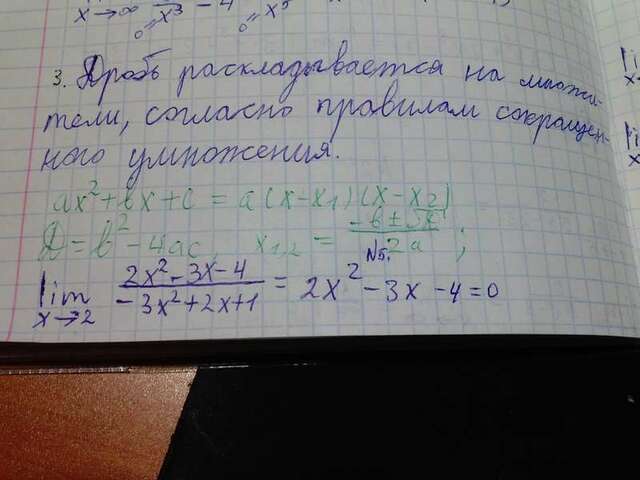 x→∞ x³ - 4 x⁵
3. Дробь раскладывается на множи-
тели, согласно правилам сокращен-
ного умножения.
ax²+bx+c = a(x-x₁)(x-x₂)
D=b²-4ac, x₁,₂ = (-b±√D)/2a ;
№5.
lim x→2 (2x²-3x-4)/(-3x²+2x+1) = 2x²-3x-4=0